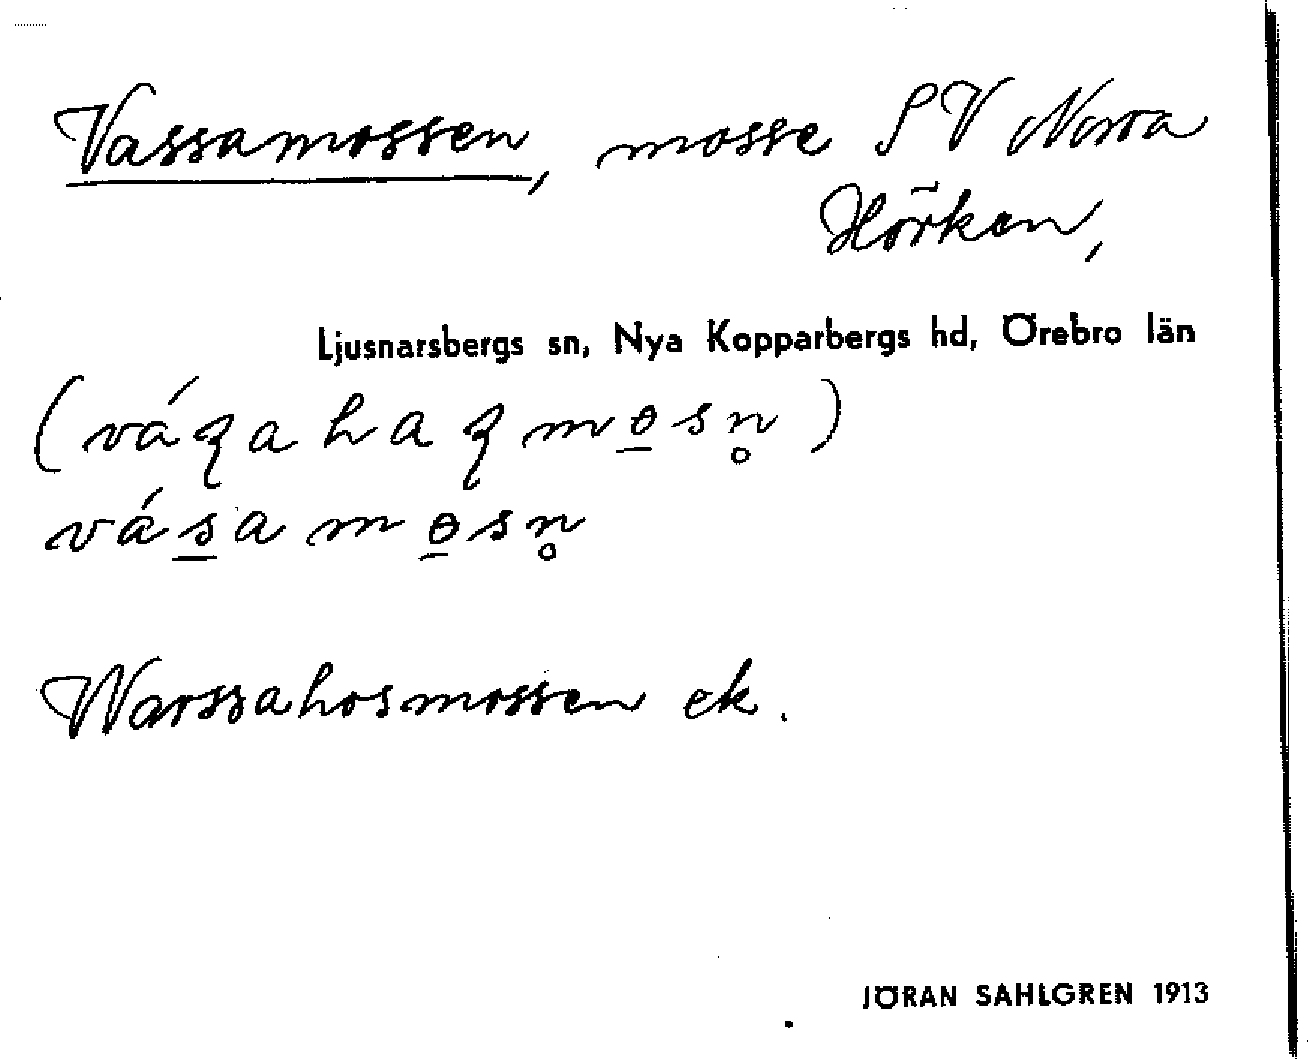 Vassamossen, mosse SV Norra
Hörken,
Ljusnarsbergs sn, Nya Kopparbergs hd, Örebro län
(váʂahaʂmɵsn̥)
vásamɵsn̥
Warssahosmossen ek.
JÖRAN SAHLGREN 1913